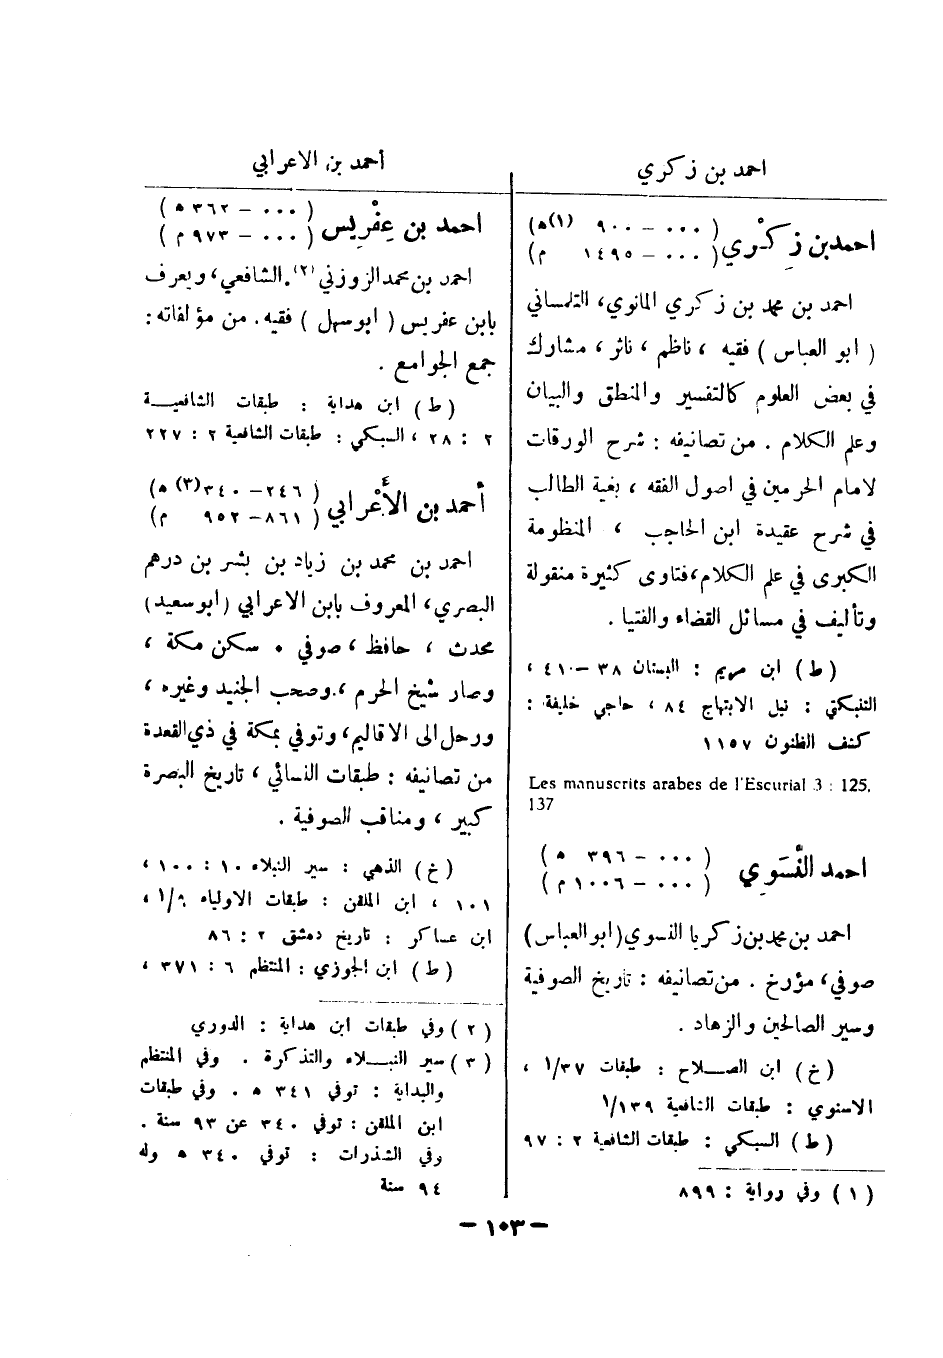 احمد بن زكري
احمد بن زكْري ( ٠٠٠ – ٩٠٠ (١) ه )
( ٠٠٠ – ١٤٩٥ م )
احمد بن محمد بن زكري المانوي، التلمساني
( ابو العباس ) فقيه ، ناظم ، ناثر ، مشارك
في بعض العلوم كالتفسير والمنطق والبيان
وعلم الكلام . من تصانيفه : شرح الورقات
لامام الحرمين في اصول الفقه ، بغية الطالب
في شرح عقيدة ابن الحاجب ، المنظومة
الكبرى في علم الكلام، فتاوى كثيرة منقولة
وتأليف في مسائل القضاء والفتيا .
( ط ) ابن مريم : البستان ٣٨ – ٤١٠ ،
التنبكتي : نيل الابتهاج ٨٤ ، حاجي خليفة :
كشف الظنون ١١٥٧
Les manuscrits arabes de l'Escurial 3 : 125,
137
احمد النَّسَوي ( ٠٠٠ – ٣٩٦ ه )
( ٠٠٠ – ١٠٠٦ م )
احمد بن محمد بن زكريا النسوي (ابو العباس)
صوفي، مؤرخ . من تصانيفه : تاريخ الصوفية
وسير الصالحين والزهاد .
( خ ) ابن الصلاح : طبقات ٣٧/١ ،
الاسنوي : طبقات الشافعية ١٣٩/١
( ط ) السبكي : طبقات الشافعية ٢ : ٩٧
( ١ ) وفي رواية : ٨٩٩
أحمد بن الاعرابي
احمد بن عِفْرِيس ( ٠٠٠ – ٣٦٢ ه )
( ٠٠٠ – ٩٧٣ م )
احمد بن محمد الزوزني (٢)، الشافعي، ويعرف
بابن عفريس ( ابو سهل ) فقيه . من مؤلفاته :
جمع الجوامع .
( ط ) ابن هداية : طبقات الشافعية
٢ : ٢٨ ، السبكي : طبقات الشافعية ٢ : ٢٢٧
أحمد بن الأَعْرابي ( ٢٤٦ – ٣٤٠ (٣) ه )
( ٨٦١ – ٩٥٢ م )
احمد بن محمد بن زياد بن بشر بن درهم
البصري، المعروف بابن الاعرابي (ابو سعيد)
محدث ، حافظ ، صوفي . سكن مكة ،
وصار شيخ الحرم ، وصحب الجنيد وغيره ،
ورحل الى الاقاليم، وتوفي بمكة في ذي القعدة
من تصانيفه : طبقات النسائي ، تاريخ البصرة
كبير ، ومناقب الصوفية .
( خ ) الذهبي : سير النبلاء ١٠ : ١٠٠ ،
١٠١ ، ابن الملقن : طبقات الاولياء ٩/١ ،
ابن عساكر : تاريخ دمشق ٢ : ٨٦
( ط ) ابن الجوزي : المنتظم ٦ : ٣٧١ ،
( ٢ ) وفي طبقات ابن هداية : الدوري
( ٣ ) سير النبلاء والتذكرة . وفي المنتظم
والبداية : توفي ٣٤١ ه . وفي طبقات
ابن الملقن : توفي ٣٤٠ عن ٩٣ سنة .
وفي الشذرات : توفي ٣٤٠ ه وله
٩٤ سنة
– ١٠٣ –